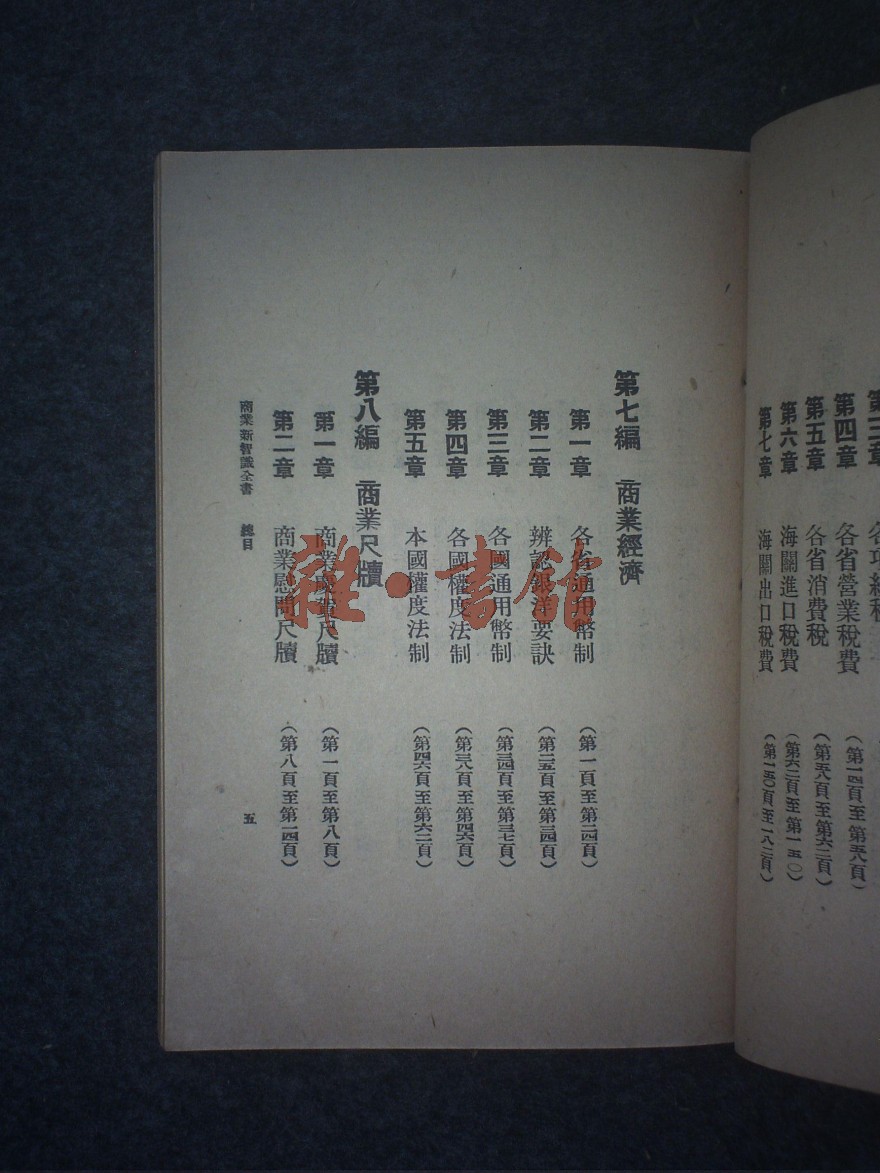 第四章 各省營業稅費 (第一四頁至第五八頁)
第五章 各省消費稅 (第五八頁至第六二頁)
第六章 海關進口稅費 (第六二頁至第一五〇)
第七章 海關出口稅費 (第一五〇頁至一八二頁)
第七編 商業經濟
第一章 各省通用幣制 (第一頁至第二四頁)
第二章 辨認銀洋要訣 (第二五頁至第三四頁)
第三章 各國通用幣制 (第三四頁至第三七頁)
第四章 各國權度法制 (第三八頁至第四六頁)
第五章 本國權度法制 (第四六頁至第六二頁)
第八編 商業尺牘
第一章 商業慶賀尺牘 (第一頁至第八頁)
第二章 商業慰問尺牘 (第八頁至第一四頁)
商業新智識全書 總目 五
雜·書館